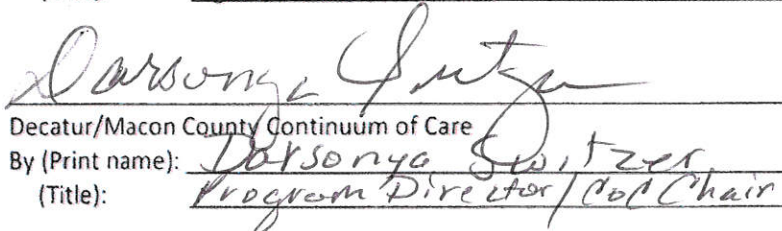 Darsonya Switzer
Decatur/Macon County Continuum of Care
By (Print name): Darsonya Switzer
(Title): Program Director/CoC Chair